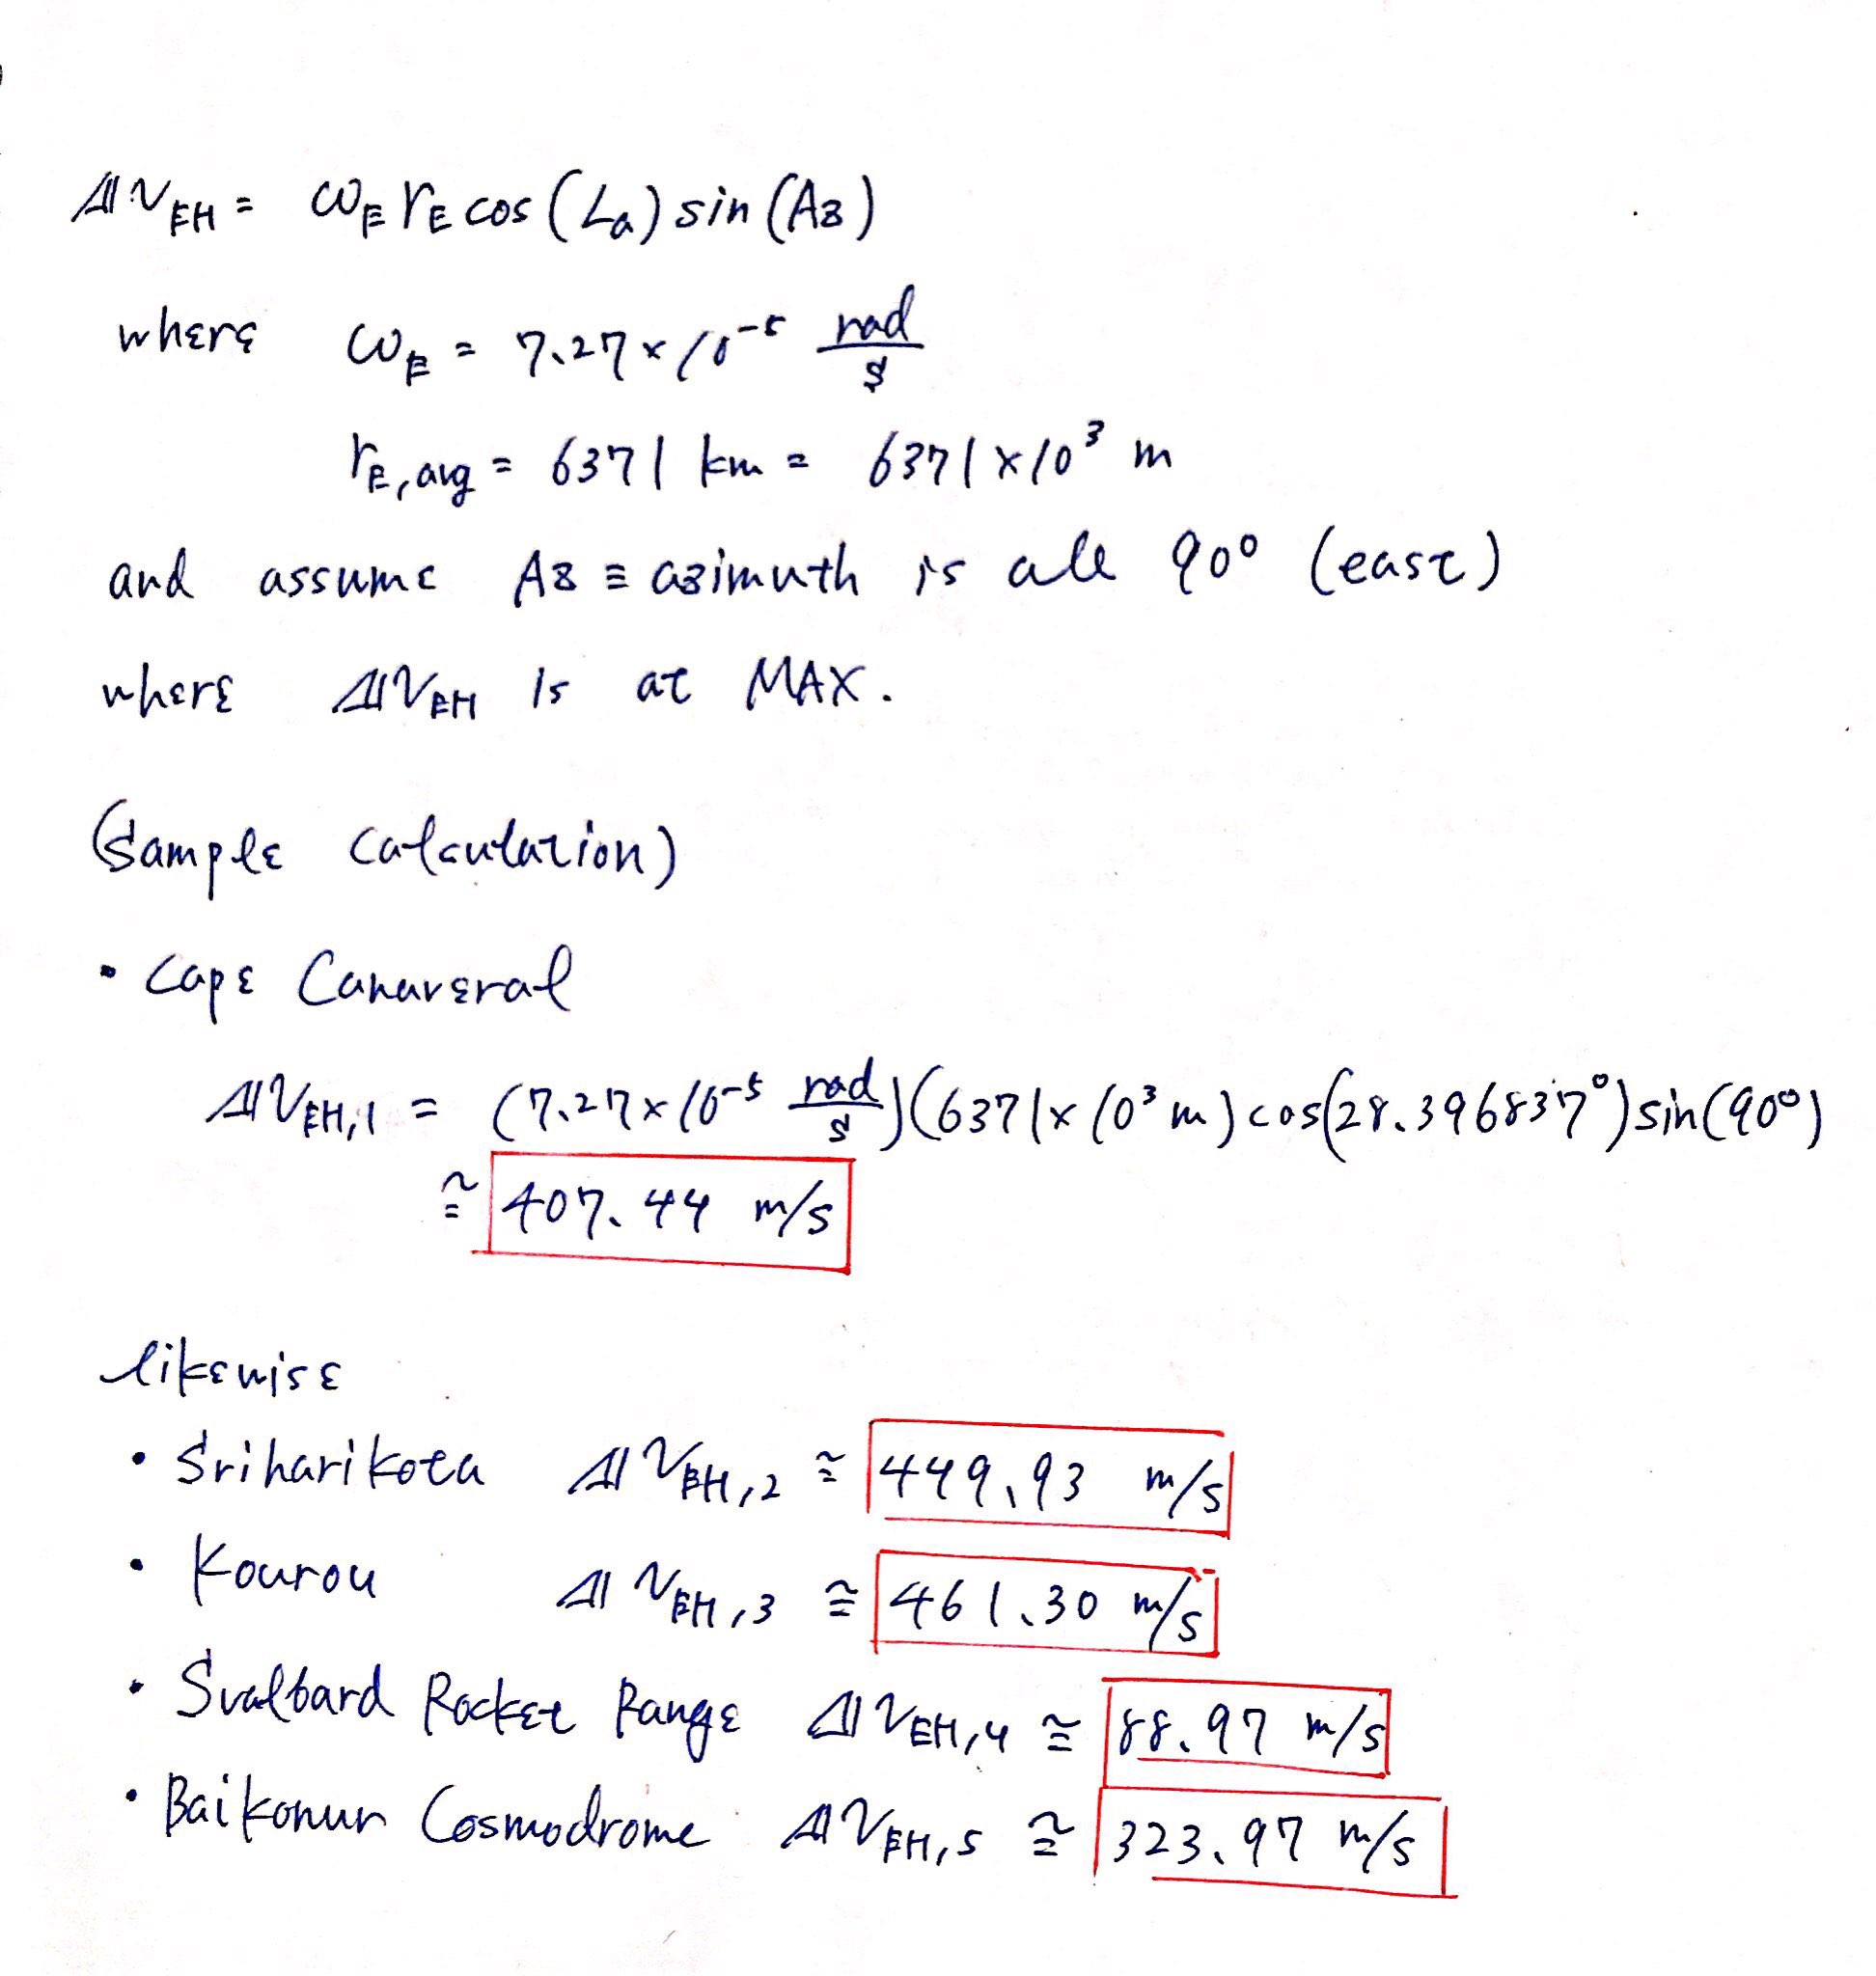 ΔV_EH = ω_E r_E cos(La) sin(Az)
where ω_E = 7.27×10⁻⁵ rad/s
r_E,avg = 6371 km = 6371×10³ m
and assume Az ≡ azimuth is all 90° (east)
where ΔV_EH is at MAX.
(Sample calculation)
• Cape Canaveral
ΔV_EH,1 = (7.27×10⁻⁵ rad/s)(6371×10³ m) cos(28.396837°) sin(90°)
≅ 407.44 m/s
likewise
• Sriharikota ΔV_EH,2 ≅ 449.93 m/s
• Kourou ΔV_EH,3 ≅ 461.30 m/s
• Svalbard Rocket Range ΔV_EH,4 ≅ 88.97 m/s
• Baikonur Cosmodrome ΔV_EH,5 ≅ 323.97 m/s